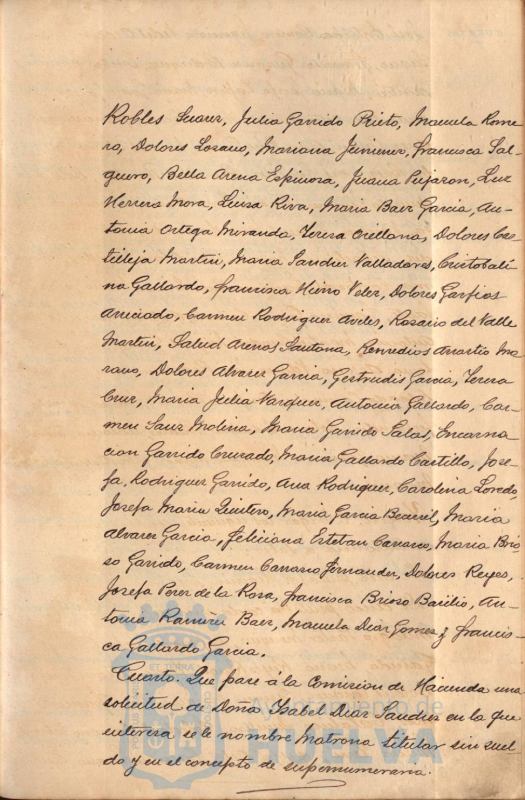 Robles Suarez, Julia Garrido Prieto, Manuela Rome-
ro, Dolores Lozano, Mariana Jimenez, Francisca Sal-
guero, Bella Arena Espinosa, Juana Pujazon, Luz
Herrera Mora, Luisa Riva, Maria Baez Garcia, An-
tonia Ortega Miranda, Teresa Orellana, Dolores Cas-
tilleja Martin, Maria Sanchez Valladares, Cristobali-
na Gallardo, Francisca Hierro Velez, Dolores Garfias
Carmen Rodriguez Aviles, Rosario del Valle
Martin, Salud Arenas Santana, Remedios Mo-
reno, Dolores Alvarez Garcia, Gertrudis Garcia, Teresa
Cruz, Maria Julia Vazquez, Antonia Gallardo, Car-
men Sanz Molina, Maria Garrido Salas, Encarna
cion Garrido Cruzado, Maria Gallardo Castillo, Jose-
fa Rodriguez Garrido, Ana Rodriguez, Carolina Loredo,
Josefa Maria Quintero, Maria Garcia Becerril, Maria
Alvarez Garcia, Feliciana Esteban Carrasco, Maria Brio
so Garrido, Carmen Carrasco Fernandez, Dolores Reyes,
Josefa Perez de la Rosa, Francisca Brioso Basilio, An-
tonia Ramirez Baez, Manuela Diaz Gomez y Francis-
ca Gallardo Garcia.
Cuarto. Que pase á la Comision de Hacienda una
solicitud de Doña Isabel Diaz Sanchez en la que
interesa se le nombre Matrona titular sin suel-
do y en el concepto de supernumeraria.
Ayuntamiento de
HUELVA